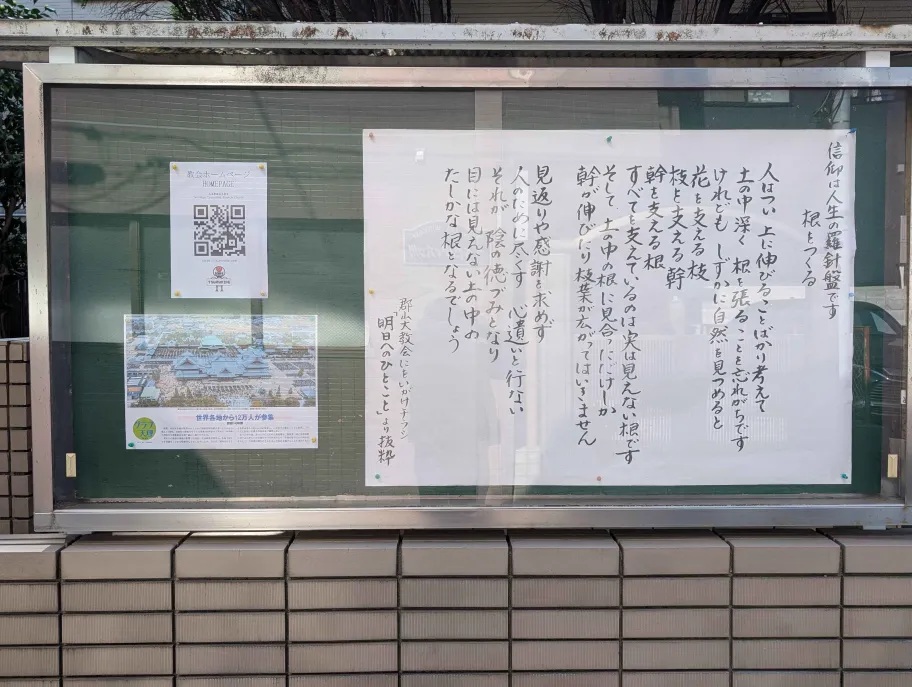 信仰は人生の羅針盤です
根をつくる
人はつい 上に伸びることばかり考えて
土の中深く 根を張ることを忘れがちです
けれども しずかに自然を見つめると
花を支える枝
枝を支える幹
幹を支える根
すべてを支えているのは実は見えない根です
そして 土の中の根に見合っただけしか
幹が伸びたり枝葉が広がってはいきません
見返りや感謝を求めず
人のために尽くす 心遣いと行ない
それが 陰の徳づみとなり
目には見えない土の中の
たしかな根となるでしょう
郡山大教会 にをいがけチラシ
「明日へのひとこと」より抜粋
教会ホームページ
HOMEPAGE
世界各地から12万人が参集